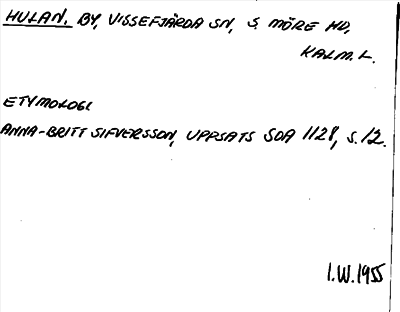 HULAN. BY, VISSEFJÄRDA SN, S. MÖRE HD,
KALM. L.
ETYMOLOGI
ANNA-BRITT SIFVERSSON, UPPSATS SOA 1128, S. 12.
I.W. 1955